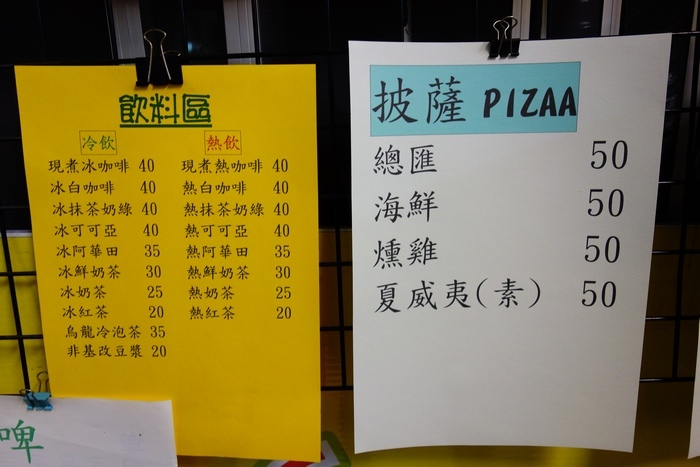 飲料區
冷飲
現煮冰咖啡 40
冰白咖啡 40
冰抹茶奶綠 40
冰可可亞 40
冰阿華田 35
冰鮮奶茶 30
冰奶茶 25
冰紅茶 20
烏龍冷泡茶 35
非基改豆漿 20
熱飲
現煮熱咖啡 40
熱白咖啡 40
熱抹茶奶綠 40
熱可可亞 40
熱阿華田 35
熱鮮奶茶 30
熱奶茶 25
熱紅茶 20
披薩 PIZAA
總匯 50
海鮮 50
燻雞 50
夏威夷(素) 50
啤